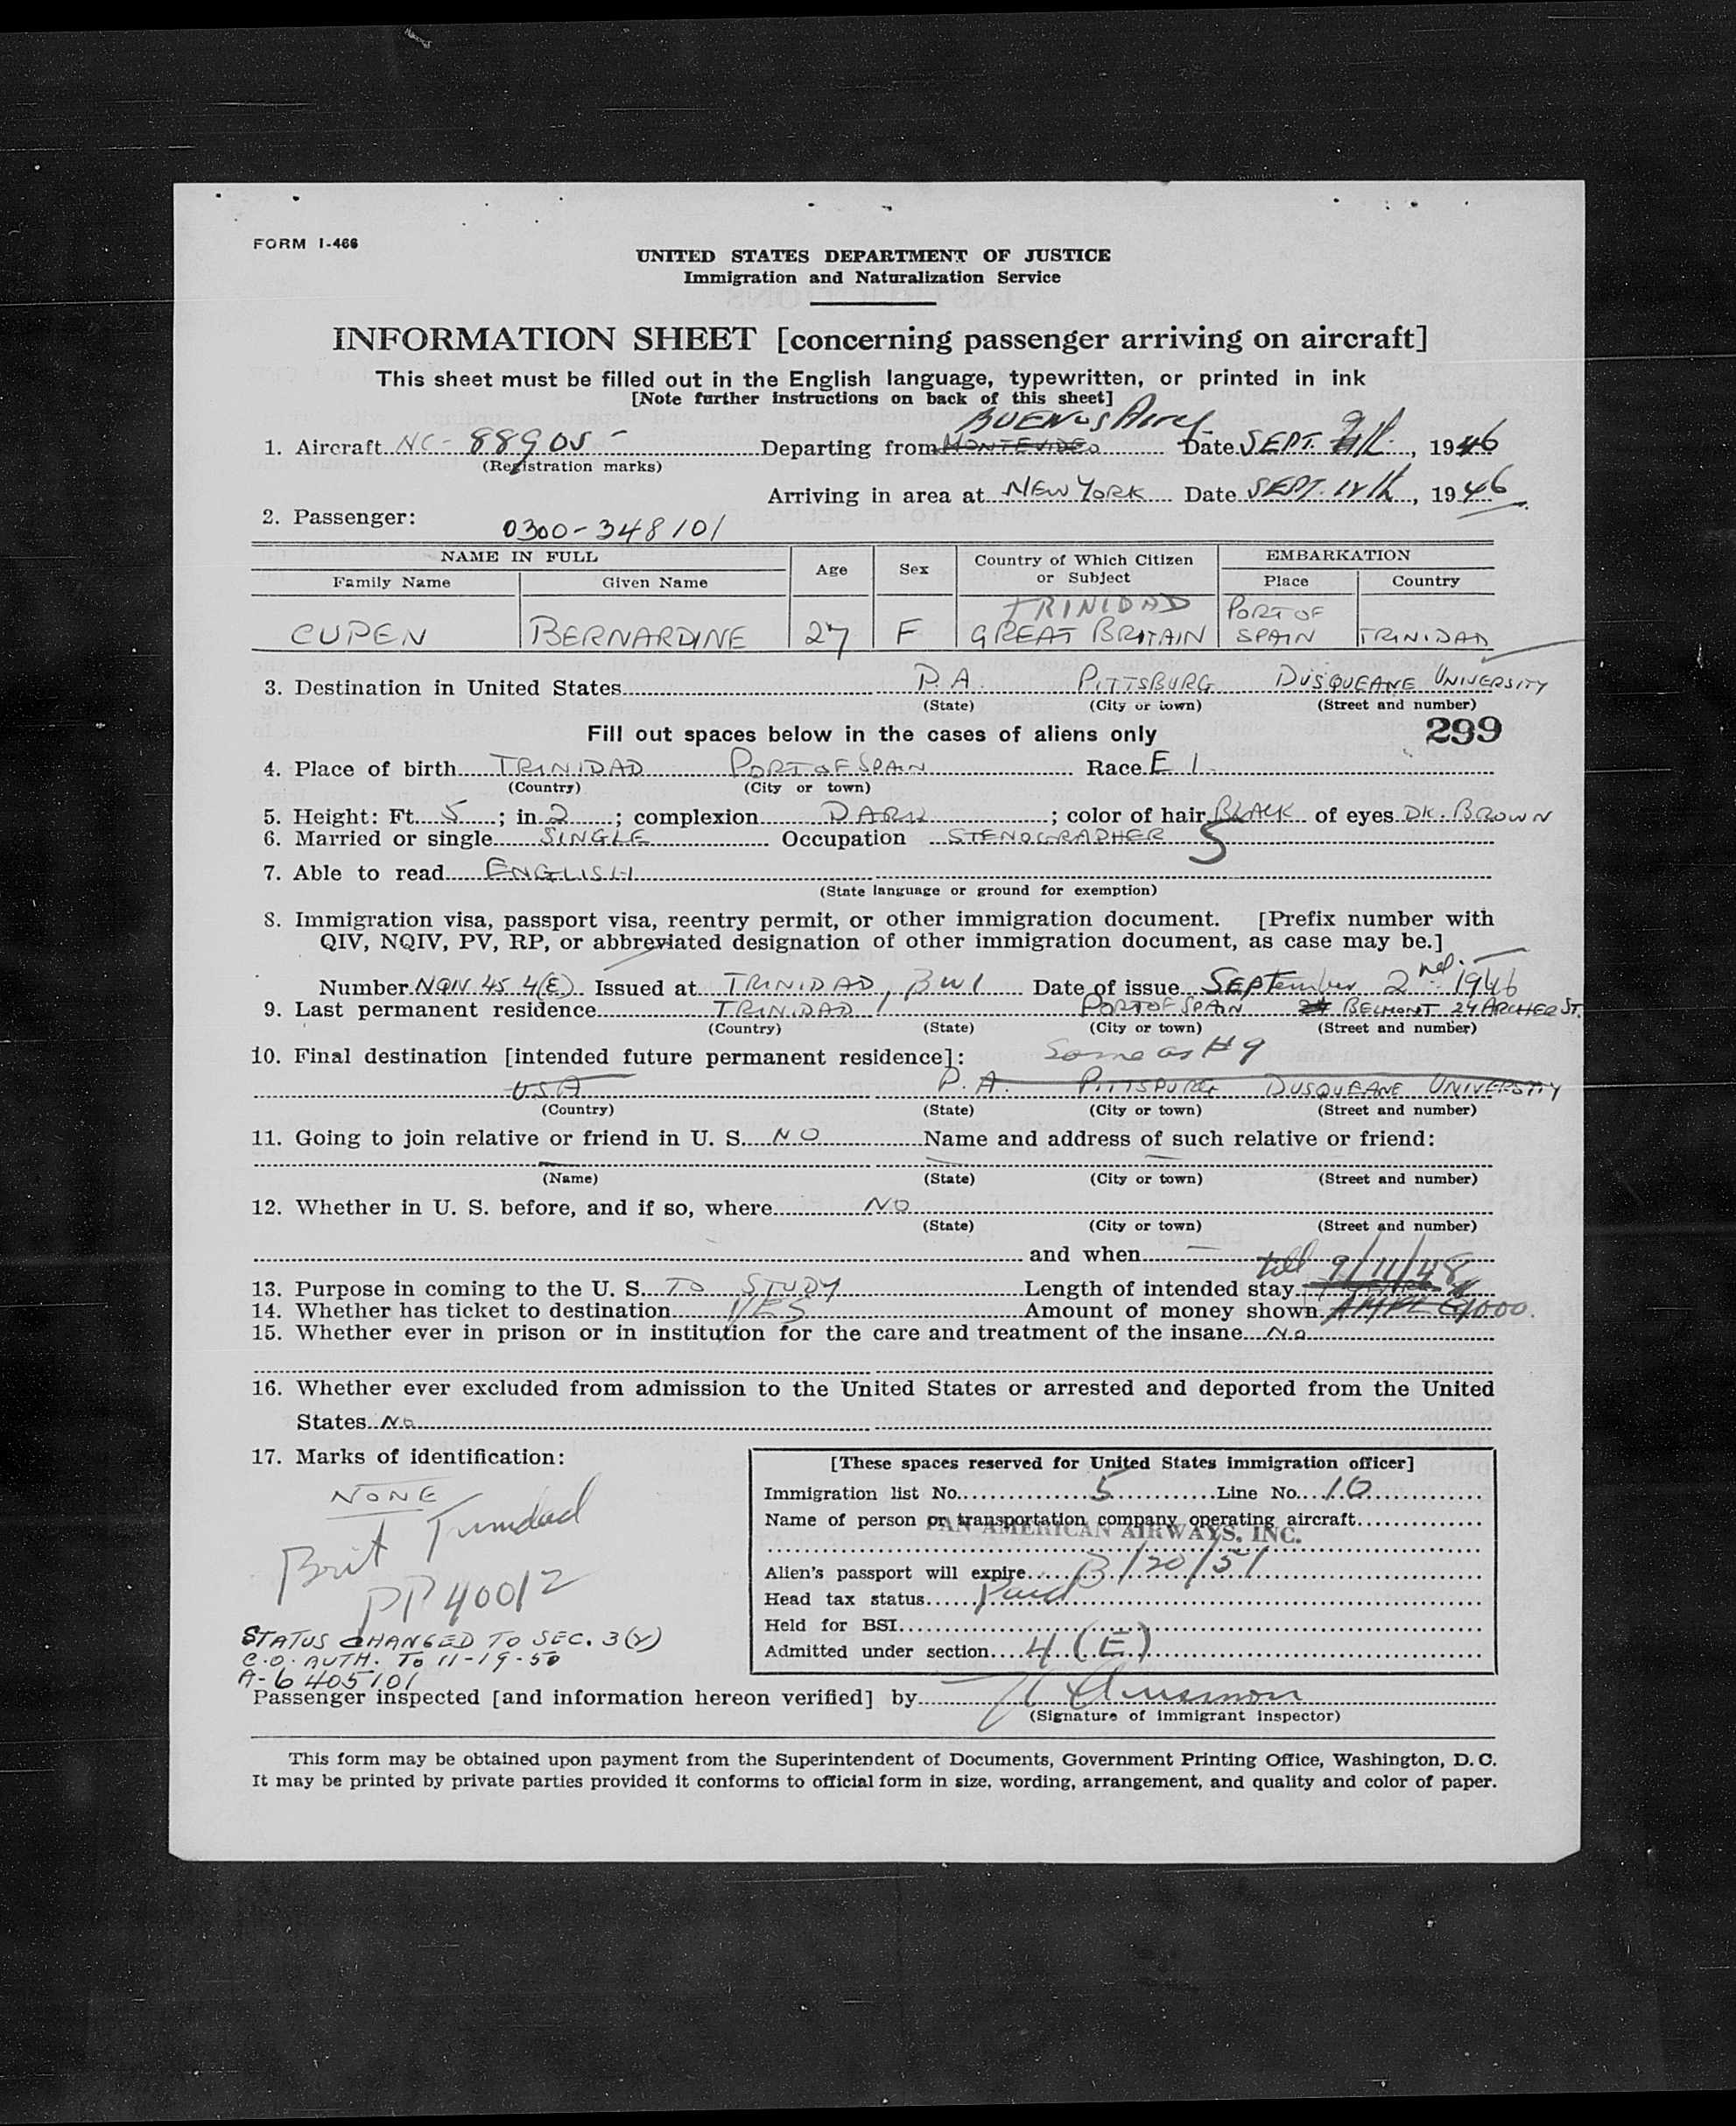 FORM I-466
UNITED STATES DEPARTMENT OF JUSTICE
Immigration and Naturalization Service
INFORMATION SHEET [concerning passenger arriving on aircraft]
This sheet must be filled out in the English language, typewritten, or printed in ink
[Note further instructions on back of this sheet]
BUENOS Aires
1. Aircraft NC-88905 - Departing from MONTEVIDEO Date SEPT. , 1946
(Registration marks)
Arriving in area at NEW YORK Date SEPT. , 1946
2. Passenger:
0300-348101
NAME IN FULL Age Sex Country of Which Citizen or Subject EMBARKATION
Family Name Given Name Place Country
TRINIDAD PORT OF
CUPEN BERNARDINE 27 F GREAT BRITAIN SPAIN TRINIDAD
3. Destination in United States P.A. PITTSBURG DUSQUEANE UNIVERSITY
(State) (City or town) (Street and number)
Fill out spaces below in the cases of aliens only 299
4. Place of birth TRINIDAD PORT OF SPAIN Race E I
(Country) (City or town)
5. Height: Ft. 5 ; in 2 ; complexion DARK ; color of hair BLACK of eyes DK. BROWN
6. Married or single SINGLE Occupation STENOGRAPHER 5
7. Able to read ENGLISH
(State language or ground for exemption)
8. Immigration visa, passport visa, reentry permit, or other immigration document. [Prefix number with
QIV, NQIV, PV, RP, or abbreviated designation of other immigration document, as case may be.]
Number NQIV 45 4(E) Issued at TRINIDAD, BWI Date of issue September 2nd. 1946
9. Last permanent residence TRINIDAD PORT OF SPAIN BELMONT 24 ARCHER ST.
(Country) (State) (City or town) (Street and number)
10. Final destination [intended future permanent residence]: Same as #9
USA P.A. PITTSPURG DUSQUEANE UNIVERSITY
(Country) (State) (City or town) (Street and number)
11. Going to join relative or friend in U. S. NO Name and address of such relative or friend:
(Name) (State) (City or town) (Street and number)
12. Whether in U. S. before, and if so, where NO
(State) (City or town) (Street and number)
and when —
till 9/11/48
13. Purpose in coming to the U. S. TO STUDY Length of intended stay
14. Whether has ticket to destination YES Amount of money shown
15. Whether ever in prison or in institution for the care and treatment of the insane No
16. Whether ever excluded from admission to the United States or arrested and deported from the United
States No
17. Marks of identification:
NONE
Brit Trinidad
PP 40012
STATUS CHANGED TO SEC. 3(Y)
C.O. AUTH. TO 11-19-50
A-6405101
[These spaces reserved for United States immigration officer]
Immigration list No. 5 Line No. 10
Name of person or transportation company operating aircraft
PAN AMERICAN AIRWAYS, INC.
Alien's passport will expire 3/20/51
Head tax status Paid
Held for BSI
Admitted under section 4(E)
Passenger inspected [and information hereon verified] by
(Signature of immigrant inspector)
This form may be obtained upon payment from the Superintendent of Documents, Government Printing Office, Washington, D. C.
It may be printed by private parties provided it conforms to official form in size, wording, arrangement, and quality and color of paper.